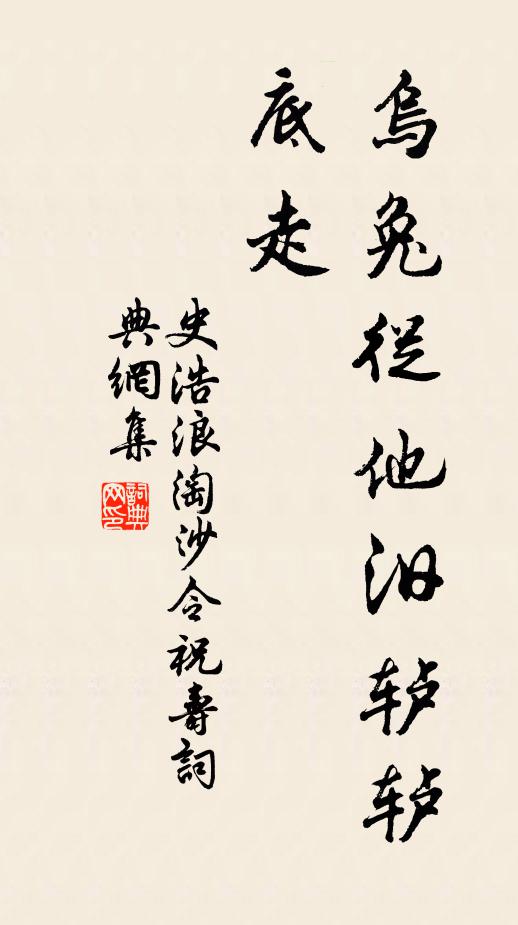 烏兔從他汩轳轳
底走
史浩浪淘沙令祝壽詞
典網集
詞典
网印